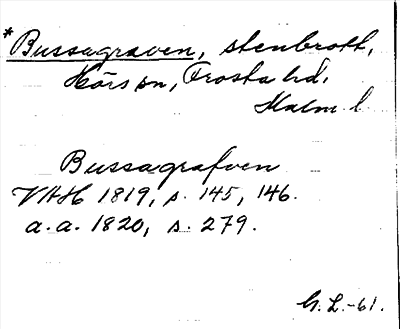 *Bussagraven, stenbrott,
Hörs sn, Frosta hd.
Malm. l.
Bussagrafven
VAH 1819, s. 145, 146.
a. a. 1820, s. 279.
G. L. -61.